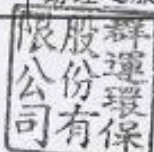 群運環保
股份有
限公司